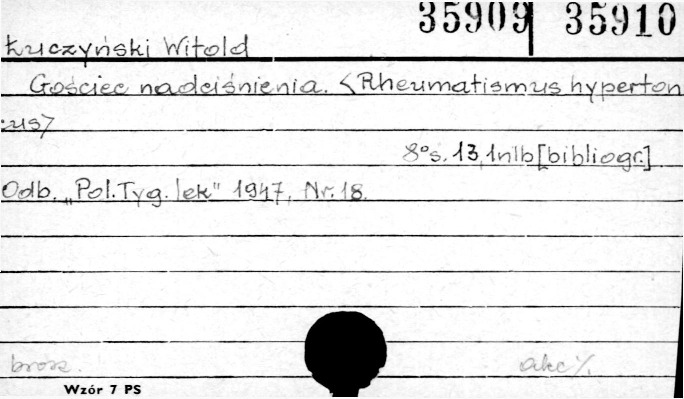 35909 35910
Łuczyński Witold
Gościec nadciśnienia. <Rheumatismus hyperton
:us>
8° s. 13, 1nlb [bibliogr.]
Odb. „Pol. Tyg. lek" 1947, Nr. 18.
brosz. akc %.
Wzór 7 PS